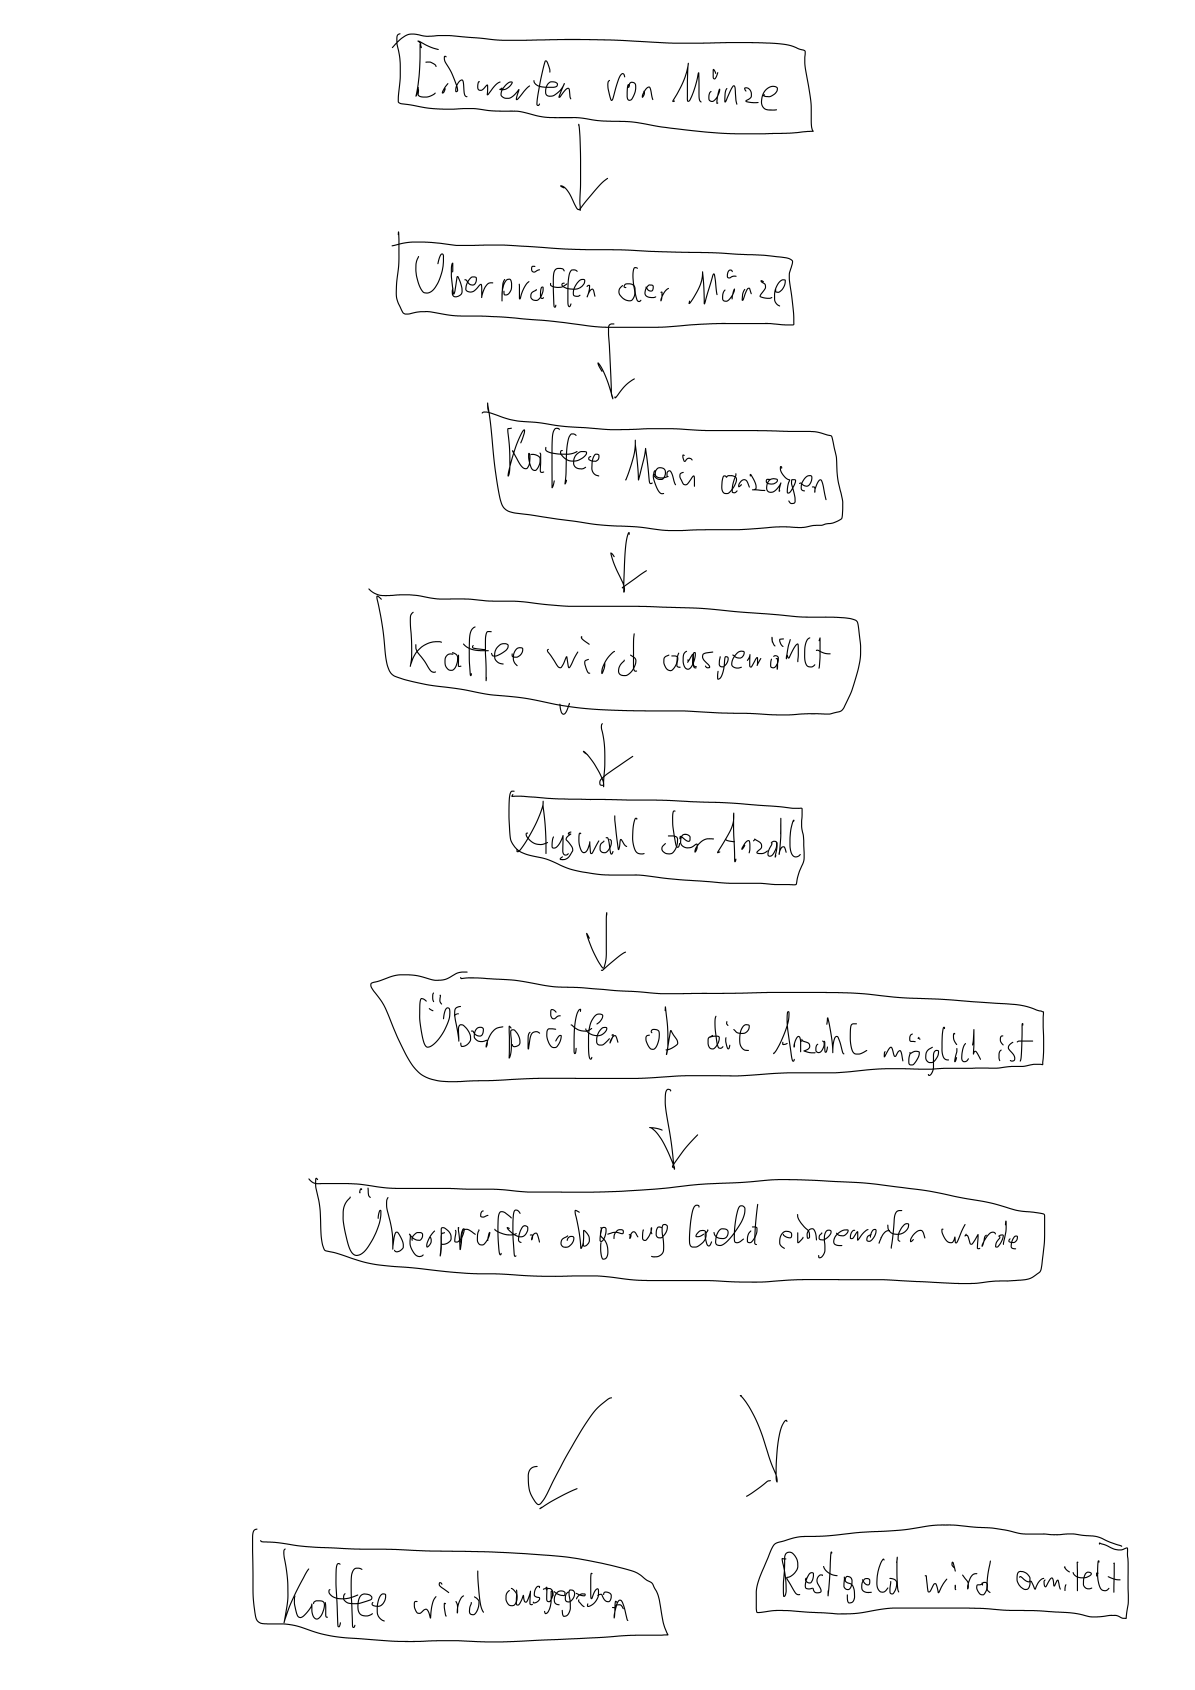 Einwerfen von Münze
Überprüffen der Münze
Kaffee Menü anzeigen
Kaffee wird ausgewählt
Auswahl der Anzahl
Überprüffen ob die Anzahl möglich ist
Überprüffen ob genug Geld eingeworfen wurde
Kaffee wird ausgegeben
Restgeld wird ermitelt